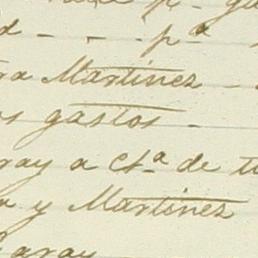 d - . - . p.ª
ra Martinez -
os gastos -
ray a Ct.ª de
a y Martinez
Garay